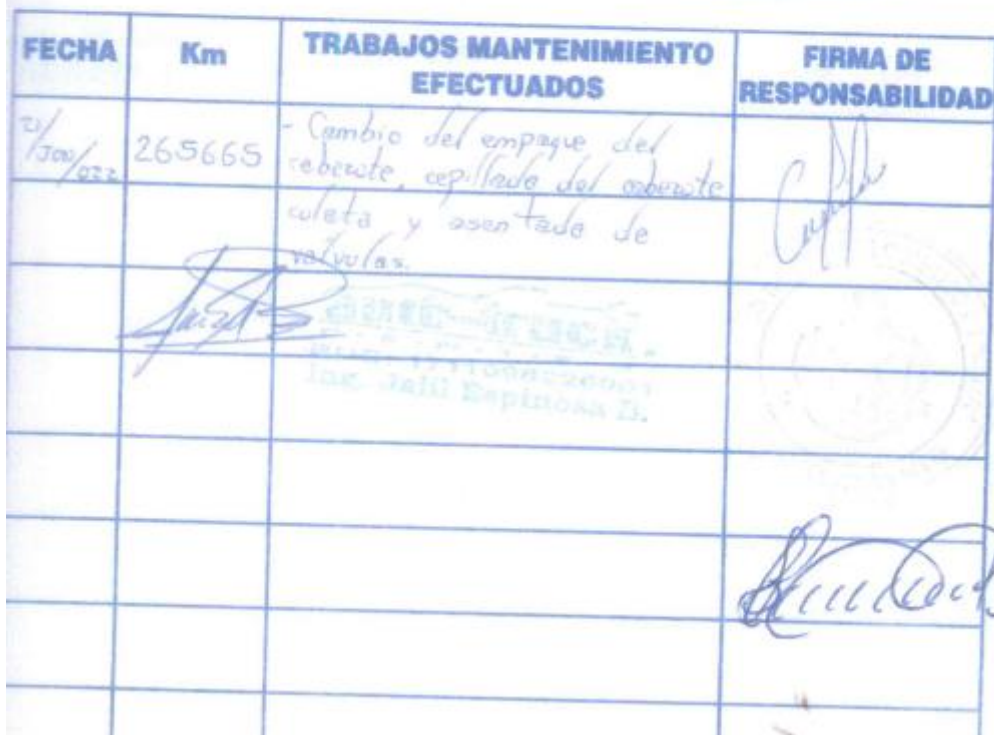 FECHA
Km
TRABAJOS MANTENIMIENTO
EFECTUADOS
FIRMA DE
RESPONSABILIDAD
21/
265665
- Cambio del empaque del
cabezote, cepillado del cabezote
culata y asentado de
valvulas.
Ing. Jalil Espinosa D.